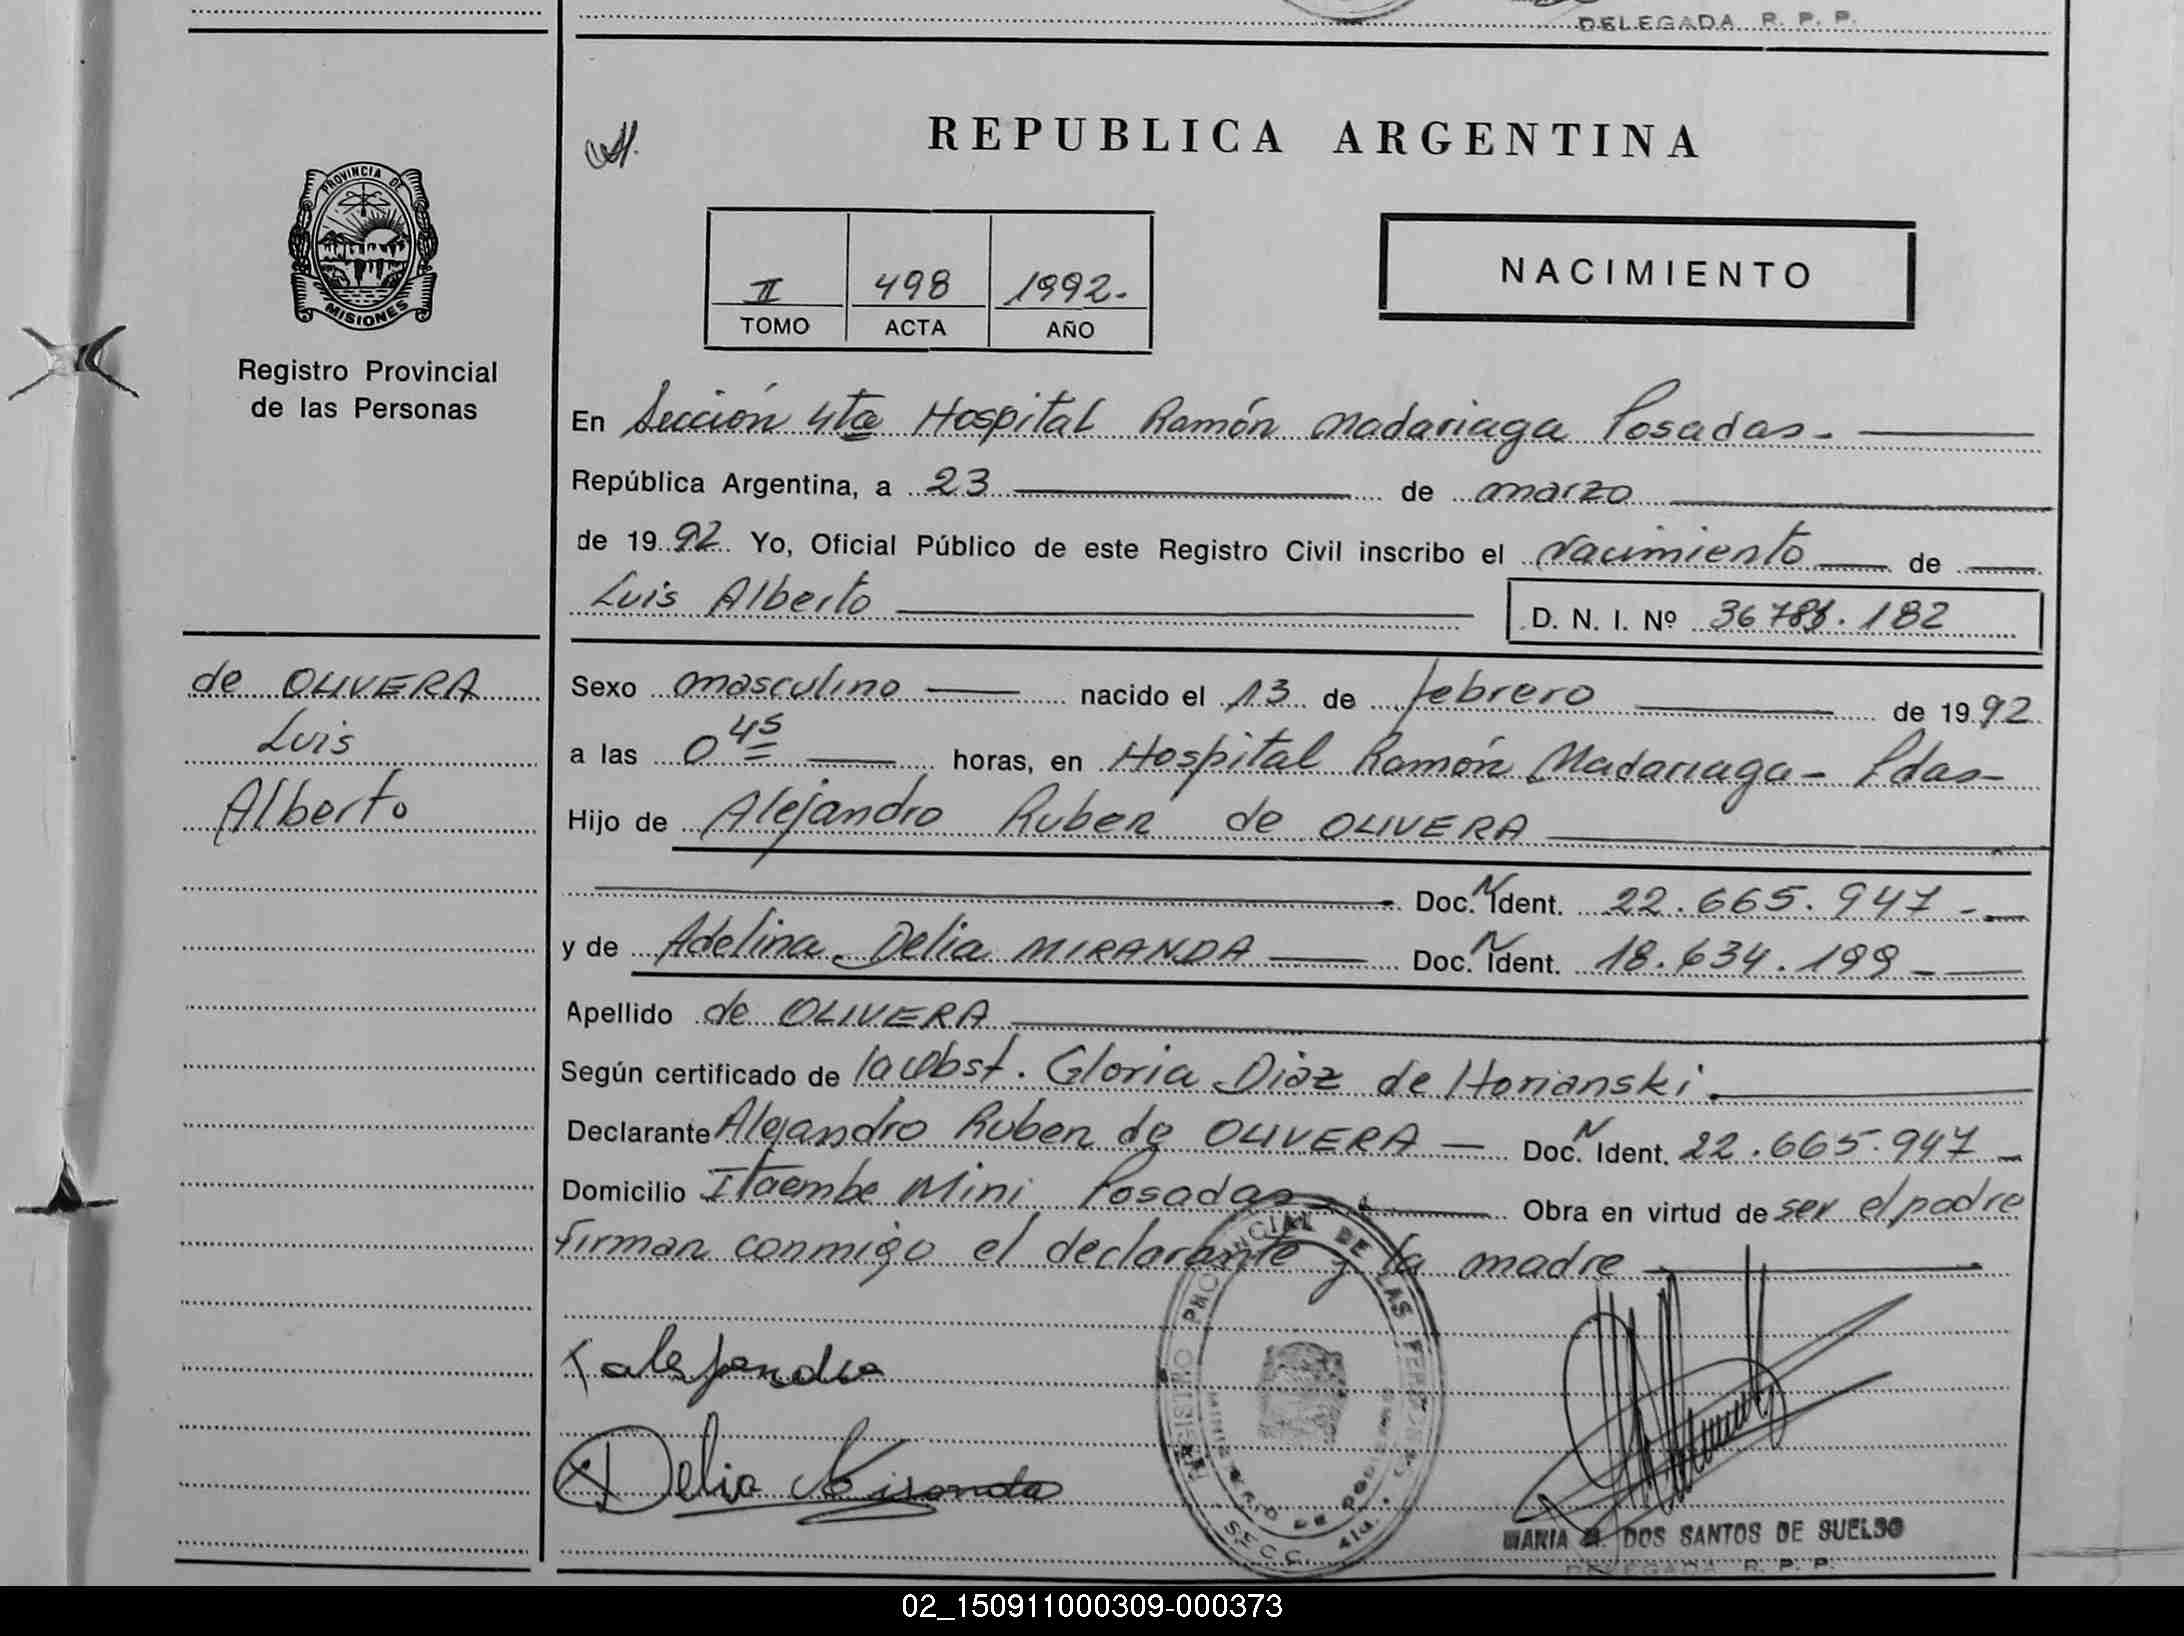 DELEGADA R. P. P.
REPUBLICA ARGENTINA
PROVINCIA DE
MISIONES
Registro Provincial
de las Personas
II 498 1992.-
TOMO ACTA AÑO
NACIMIENTO
En Sección 4ta Hospital Ramón Madariaga Posadas.-
República Argentina, a 23 de marzo
de 1992 Yo, Oficial Público de este Registro Civil inscribo el Nacimiento de
Luis Alberto
D. N. I. Nº .182
de OLIVERA
Luis
Alberto
Sexo masculino nacido el 13 de febrero de 1992
a las 0 45 horas, en Hospital Ramón Madariaga- Pdas-
Hijo de Alejandro Ruben de OLIVERA
Doc. N Ident. 22.665.947-
y de Adelina Delia MIRANDA Doc. N Ident. 18.634.199-
Apellido de OLIVERA
Según certificado de la Obst. Gloria Diaz de Horianski
Declarante Alejandro Ruben de OLIVERA - Doc. N Ident. 22.665.947-
Domicilio Itaembe Mini Posadas Obra en virtud de ser el padre
firman conmigo el declarante y la madre
alejandro
Delia Miranda
REGISTRO PROVINCIAL DE LAS PERSONAS
MINISTERIO DE GOBIERNO
SECC. 4ta.
MARIA DOS SANTOS DE SUELSO
DELEGADA R. P. P.
02_150911000309-000373